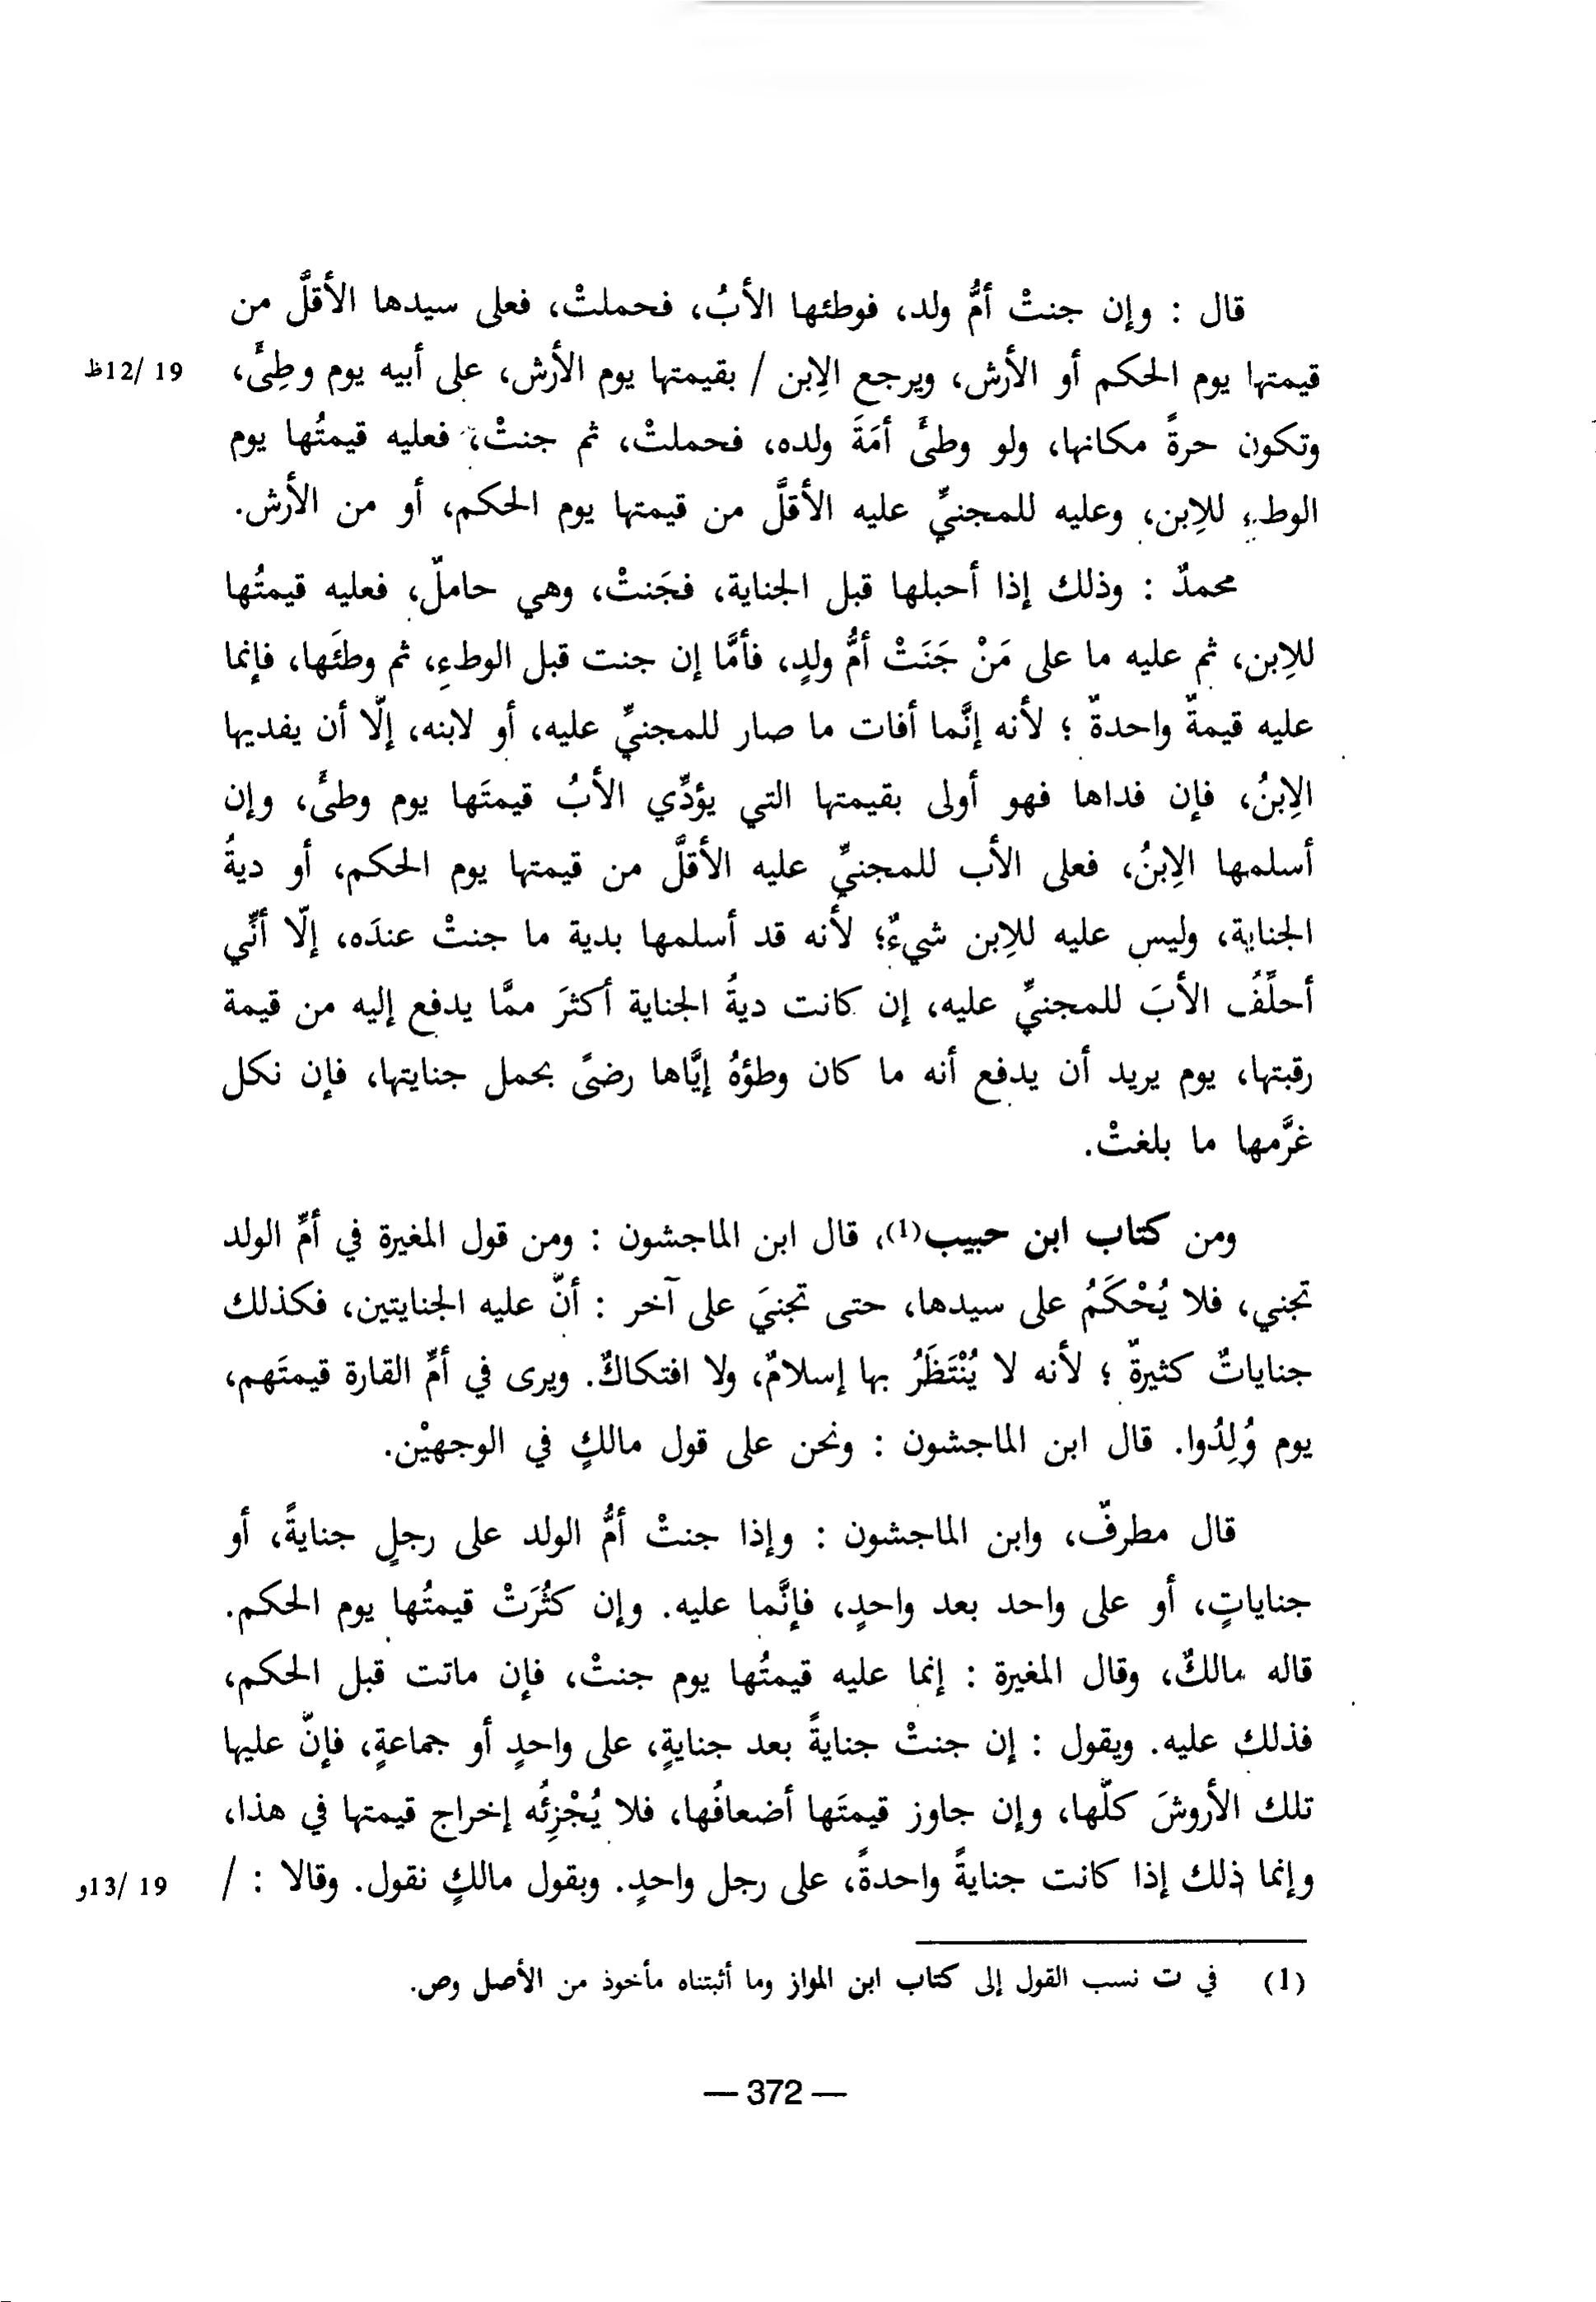 قال : وإن جنتْ أمُّ ولد، فوطئها الأبُ، فحملتْ، فعلى سيدها الأقلَّ من
قيمتها يوم الحكم أو الأرش، ويرجع الاِبن / بقيمتها يوم الأرش، على أبيه يوم وطِئَ، 19 /12ظ
وتكون حرةً مكانها، ولو وطئَ أمَةَ ولده، فحملتْ، ثم جنتْ، فعليه قيمتُها يوم
الوطءِ للاِبن، وعليه للمجنيِّ عليه الأقلَّ من قيمتها يوم الحكم، أو من الأرش.
محمدٌ : وذلك إذا أحبلها قبل الجناية، فجَنتْ، وهي حاملٌ، فعليه قيمتُها
للاِبن، ثم عليه ما على مَنْ جَنَتْ أمُّ ولدٍ، فأمَّا إن جنت قبل الوطءِ، ثم وطئَها، فإنما
عليه قيمةٌ واحدةٌ ؛ لأنه إنَّما أفات ما صار للمجنيِّ عليه، أو لابنه، إلّا أن يفديها
الاِبنُ، فإن فداها فهو أولى بقيمتها التي يؤدِّي الأبُ قيمتَها يوم وطئَ، وإن
أسلمها الاِبنُ، فعلى الأب للمجنيِّ عليه الأقلَّ من قيمتها يوم الحكم، أو ديةُ
الجناية، وليس عليه للاِبن شيءٌ؛ لأنه قد أسلمها بدية ما جنتْ عندَه، إلّا أنِّي
أحلِّفُ الأبَ للمجنيِّ عليه، إن كانت ديةُ الجناية أكثرَ ممَّا يدفع إليه من قيمة
رقبتها، يوم يريد أن يدفع أنه ما كان وطؤهُ إيَّاها رضىً بحمل جنايتها، فإن نكل
غرَّمها ما بلغتْ.
ومن كتاب ابن حبيب(1)، قال ابن الماجشون : ومن قول المغيرة في أمِّ الولد
تجني، فلا يُحْكَمُ على سيدها، حتى تجنيَ على آخر : أنّ عليه الجنايتين، فكذلك
جناياتٌ كثيرةٌ ؛ لأنه لا يُنْتَظَرُ بها إسلامٌ، ولا افتكاكٌ. ويرى في أمِّ القارة قيمتَهم،
يوم وُلِدُوا. قال ابن الماجشون : ونحن على قول مالكٍ في الوجهيْن.
قال مطرفٌ، وابن الماجشون : وإذا جنتْ أمُّ الولد على رجلٍ جنايةً، أو
جناياتٍ، أو على واحد بعد واحدٍ، فإنَّما عليه. وإن كثُرَتْ قيمتُها يوم الحكم.
قاله مالكٌ، وقال المغيرة : إنما عليه قيمتُها يوم جنتْ، فإن ماتت قبل الحكم،
فذلك عليه. ويقول : إن جنتْ جنايةً بعد جنايةٍ، على واحدٍ أو جماعةٍ، فإنّ عليها
تلك الأروشَ كلّها، وإن جاوز قيمتَها أضعافُها، فلا يُجْزِئُه إخراج قيمتها في هذا،
وإنما ذلك إذا كانت جنايةً واحدةً، على رجل واحدٍ. وبقول مالكٍ نقول. وقالا : / 19 /13و
(1) في ت نسب القول إلى كتاب ابن المواز وما أثبتناه مأخوذ من الأصل وص.
— 372 —